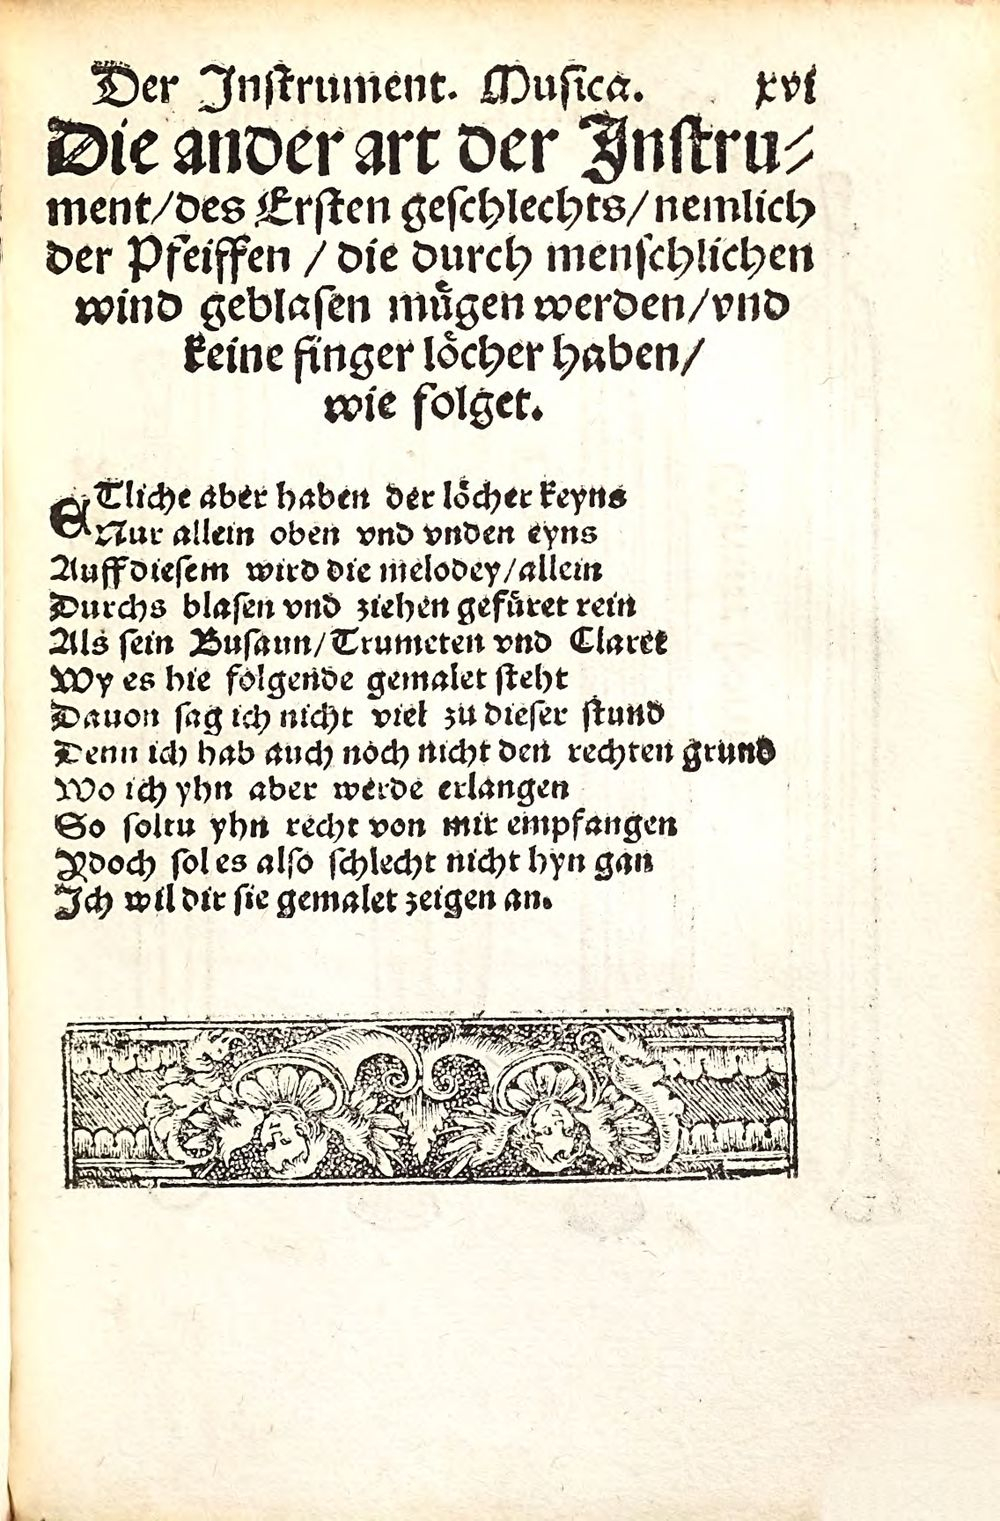 Der Instrument. Musica. xvi
Die ander art der Instru⸗
ment/des Ersten geschlechts/nemlich
der Pfeiffen / die durch menschlichen
wind geblasen muͤgen werden/vnd
keine finger loͤcher haben/
wie folget.
ETliche aber haben der loͤcher keyns
Nur allein oben vnd vnden eyns
Auff diesem wird die melodey/allein
Durchs blasen vnd ziehen gefuͤret rein
Als sein Busaun/Trumeten vnd Claret
Wy es hie folgende gemalet steht
Dauon sag ich nicht viel zu dieser stund
Denn ich hab auch noch nicht den rechten grund
Wo ich yhn aber werde erlangen
So soltu yhn recht von mir empfangen
Ydoch sol es also schlecht nicht hyn gan
Ich wil dir sie gemalet zeigen an.